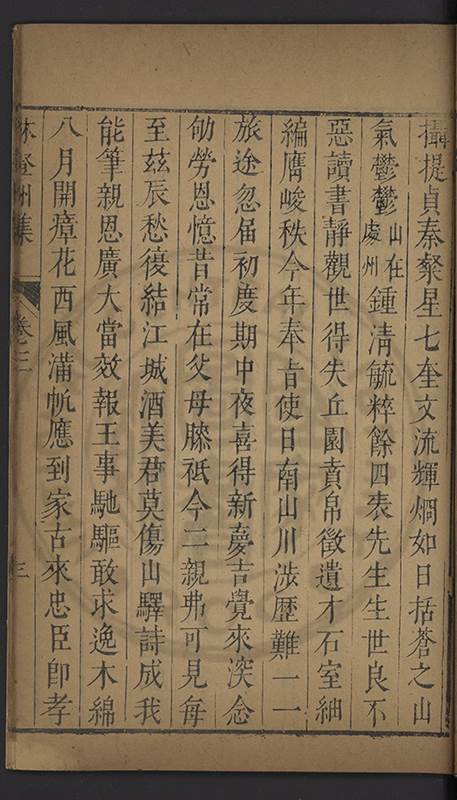 攝提貞秦粲星七奎文流輝烱如日括蒼之山
氣鬱鬱山在處州鍾清毓粹餘四表先生生世良不
惡讀書靜觀世得失丘園賁帛徵遺才石室紬
編膺峻秩今年奉旨使日南山川涉歷難一一
旅途忽届初度期中夜喜得新夢吉覺來深念
劬勞恩憶昔常在父母膝祇今二親弗可見每
至茲辰愁復結江城酒美君莫傷山驛詩成我
能筆親恩廣大當效報王事馳驅敢求逸木綿
八月開瘴花西風滿帆應到家古來忠臣卽孝
林登州集 卷三 三